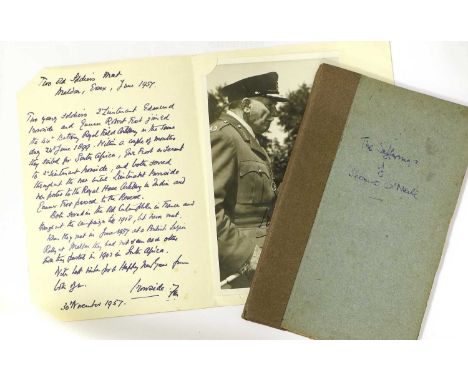 Two Old Soldiers Meet
Maldon, Essex, June 1957.
Two young soldiers 2/Lieutenant Edmund
Ironside and Gunner Robert Frost joined
the 44th Battery Royal Field Artillery on the same
day 24th June 1899. Within a couple of months
they sailed for South Africa, Gnr Frost as Servant
to 2/Lieutenant Ironside, and both served
throughout the war until Lieutenant Ironside
was posted to the Royal Horse Artillery in India and
Gunner Frost passed to the Reserve.
Both served in the Old Contemptibles in France and
throughout the campaign to 1918, but never met.
When they met in June 1957 at a British Legion
Rally at Maldon they had not seen each other
since they parted in 1902 in South Africa.
With best wishes for a Happy New Year from
both of us.
Ironside FM
30 November 1957.
The Sufferings
of